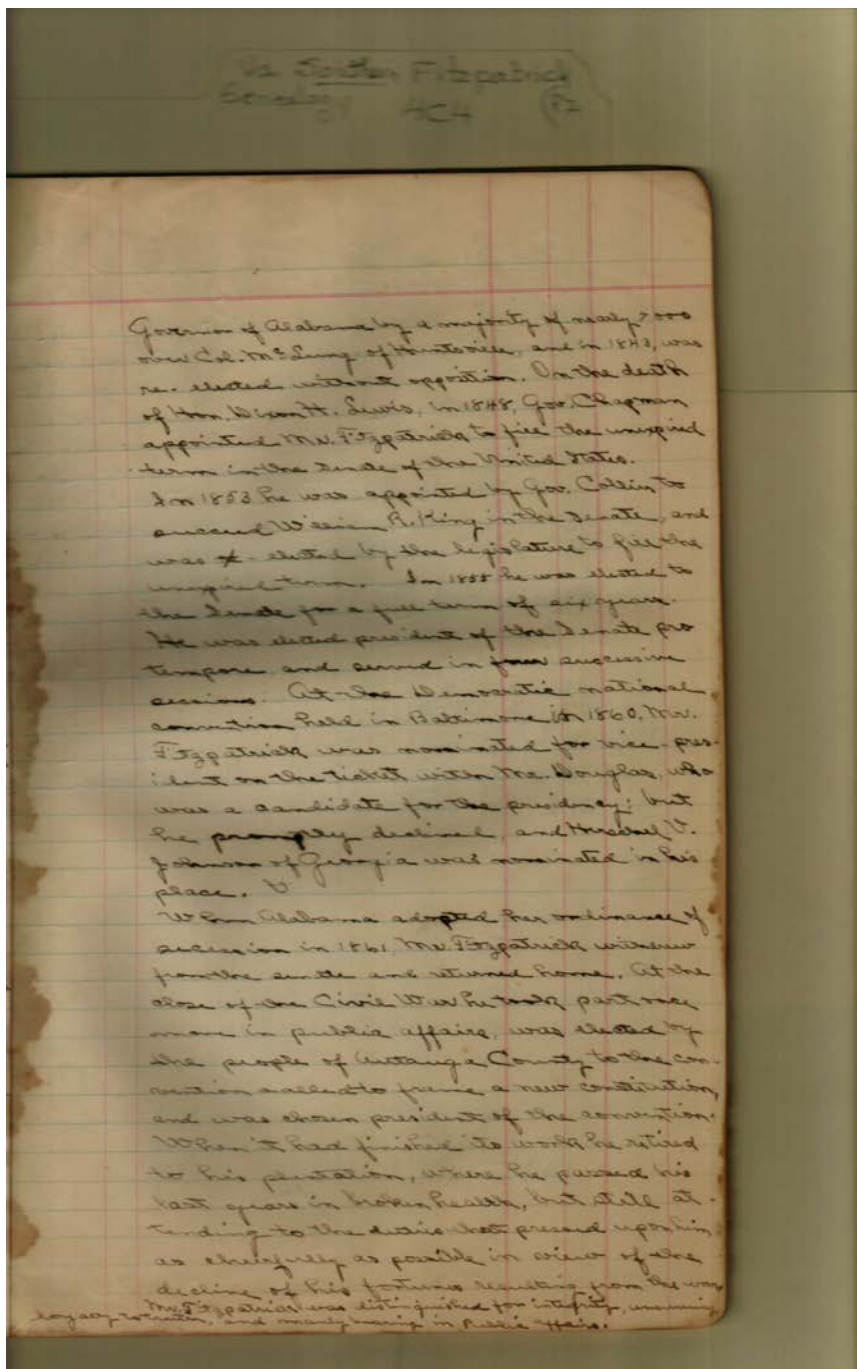 Va Southern Fitzpatrick
Genealogy 4C4
Governor of Alabama by a majority of nearly 7000
over Col. McClung of Huntsville, and in 1843, was
re-elected without opposition. On the death
of Hon. Dixon H. Lewis, in 1848, Gov. Chapman
appointed Mr. Fitzpatrick to fill the unexpired
term in the Senate of the United States.
In 1853 he was appointed by Gov. Collier to
succeed William R. King in the Senate, and
was elected by the legislature to fill the
unexpired term. In 1855 he was elected to
the Senate for a full term of six years.
He was elected president of the Senate pro
tempore and served in four successive
sessions. At the Democratic national
convention held in Baltimore in 1860, Mr.
Fitzpatrick was nominated for vice-pres-
ident on the ticket with Mr. Douglas, who
was a candidate for the presidency; but
he promptly declined, and Herschel V.
Johnson of Georgia was nominated in his
place.
When Alabama adopted her ordinance of
secession in 1861, Mr. Fitzpatrick withdrew
from the senate and returned home. At the
close of the Civil War he took part once
more in public affairs, was elected by
the people of Autauga County to the con-
vention called to frame a new constitution,
and was chosen president of the convention.
When it had finished its work he retired
to his plantation, where he passed his
last years in broken health, but still at-
tending to the duties that pressed upon him
as cheerfully as possible in view of the
decline of his fortunes resulting from the war
Mr. Fitzpatrick was distinguished for integrity, unswerving
loyalty to truth, and manly bearing in Public affairs.